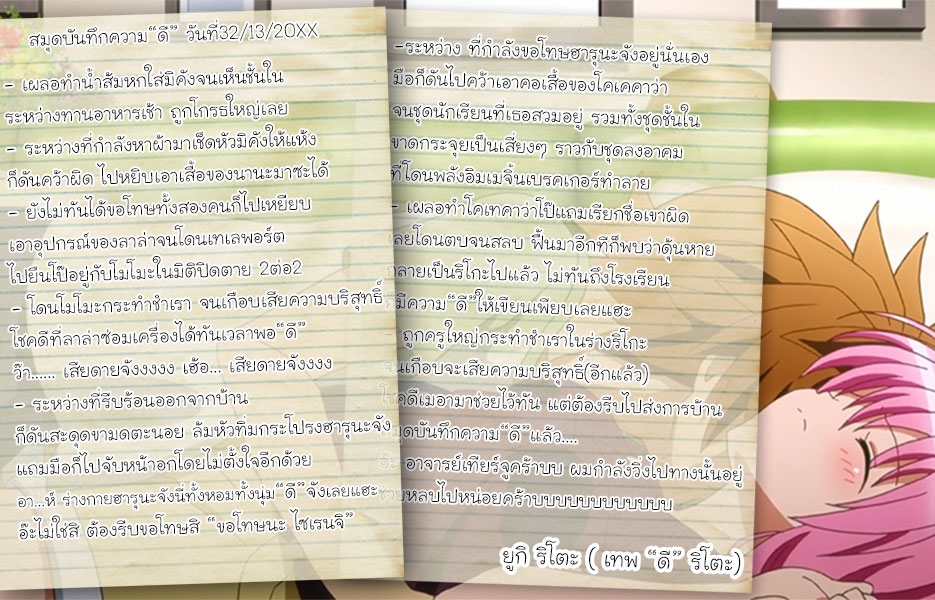 สมุดบันทึกความ“ดี” วันที่32/13/20XX
- เผลอทำน้ำส้มหกใส่มิคังจนเห็นชั้นใน
ระหว่างทานอาหารเช้า ถูกโกรธใหญ่เลย
- ระหว่างที่กำลังหาผ้ามาเช็ดหัวมิคังให้แห้ง
ก็ดันคว้าผิด ไปหยิบเอาเสื้อของนานะมาซะได้
- ยังไม่ทันได้ขอโทษทั้งสองคนก็ไปเหยียบ
เอาอุปกรณ์ของลาล่าจนโดนเทเลพอร์ต
ไปยืนโป๊อยู่กับโมโมะในมิติปิดตาย 2ต่อ2
- โดนโมโมะกระทำชำเรา จนเกือบเสียความบริสุทธิ์
โชคดีที่ลาล่าซ่อมเครื่องได้ทันเวลาพอ“ดี”
ว๊า...... เสียดายจังงงงง เฮ้อ... เสียดายจังงงง
- ระหว่างที่รีบร้อนออกจากบ้าน
ก็ดันสะดุดขามดตะนอย ล้มหัวทิ่มกระโปรงฮารุนะจัง
แถมมือก็ไปจับหน้าอกโดยไม่ตั้งใจอีกด้วย
อา...ห์ ร่างกายฮารุนะจังนี่ทั้งหอมทั้งนุ่ม“ดี”จังเลยแฮะ
อ๊ะไม่ใช่สิ ต้องรีบขอโทษสิ “ขอโทษนะ ไซเรนจิ”
-ระหว่าง ที่กำลังขอโทษฮารุนะจังอยู่นั่นเอง
มือก็ดันไปคว้าเอาคอเสื้อของโคเคคาว่า
จนชุดนักเรียนที่เธอสวมอยู่ รวมทั้งชุดชั้นใน
ขาดกระจุยเป็นเสี่ยงๆ ราวกับชุดลงอาคม
ที่โดนพลังอิมเมจิ้นเบรคเกอร์ทำลาย
- เผลอทำโคเทคาว่าโป๊แถมเรียกชื่อเขาผิด
เลยโดนตบจนสลบ ฟื้นมาอีกทีก็พบว่าดุ้นหาย
กลายเป็นริโกะไปแล้ว ไม่ทันถึงโรงเรียน
มีความ“ดี”ให้เขียนเพียบเลยแฮะ
ถูกครูใหญ่กระทำชำเราในร่างริโกะ
จนเกือบจะเสียความบริสุทธิ์(อีกแล้ว)
โชคดีเมอามาช่วยไว้ทัน แต่ต้องรีบไปส่งการบ้าน
สมุดบันทึกความ“ดี”แล้ว....
อ๊ะ อาจารย์เทียร์จูคร้าบบ ผมกำลังวิ่งไปทางนั้นอยู่
ช่วยหลบไปหน่อยคร้าบบบบบบบบบบบบบ
ยูกิ ริโตะ ( เทพ “ดี” ริโตะ)